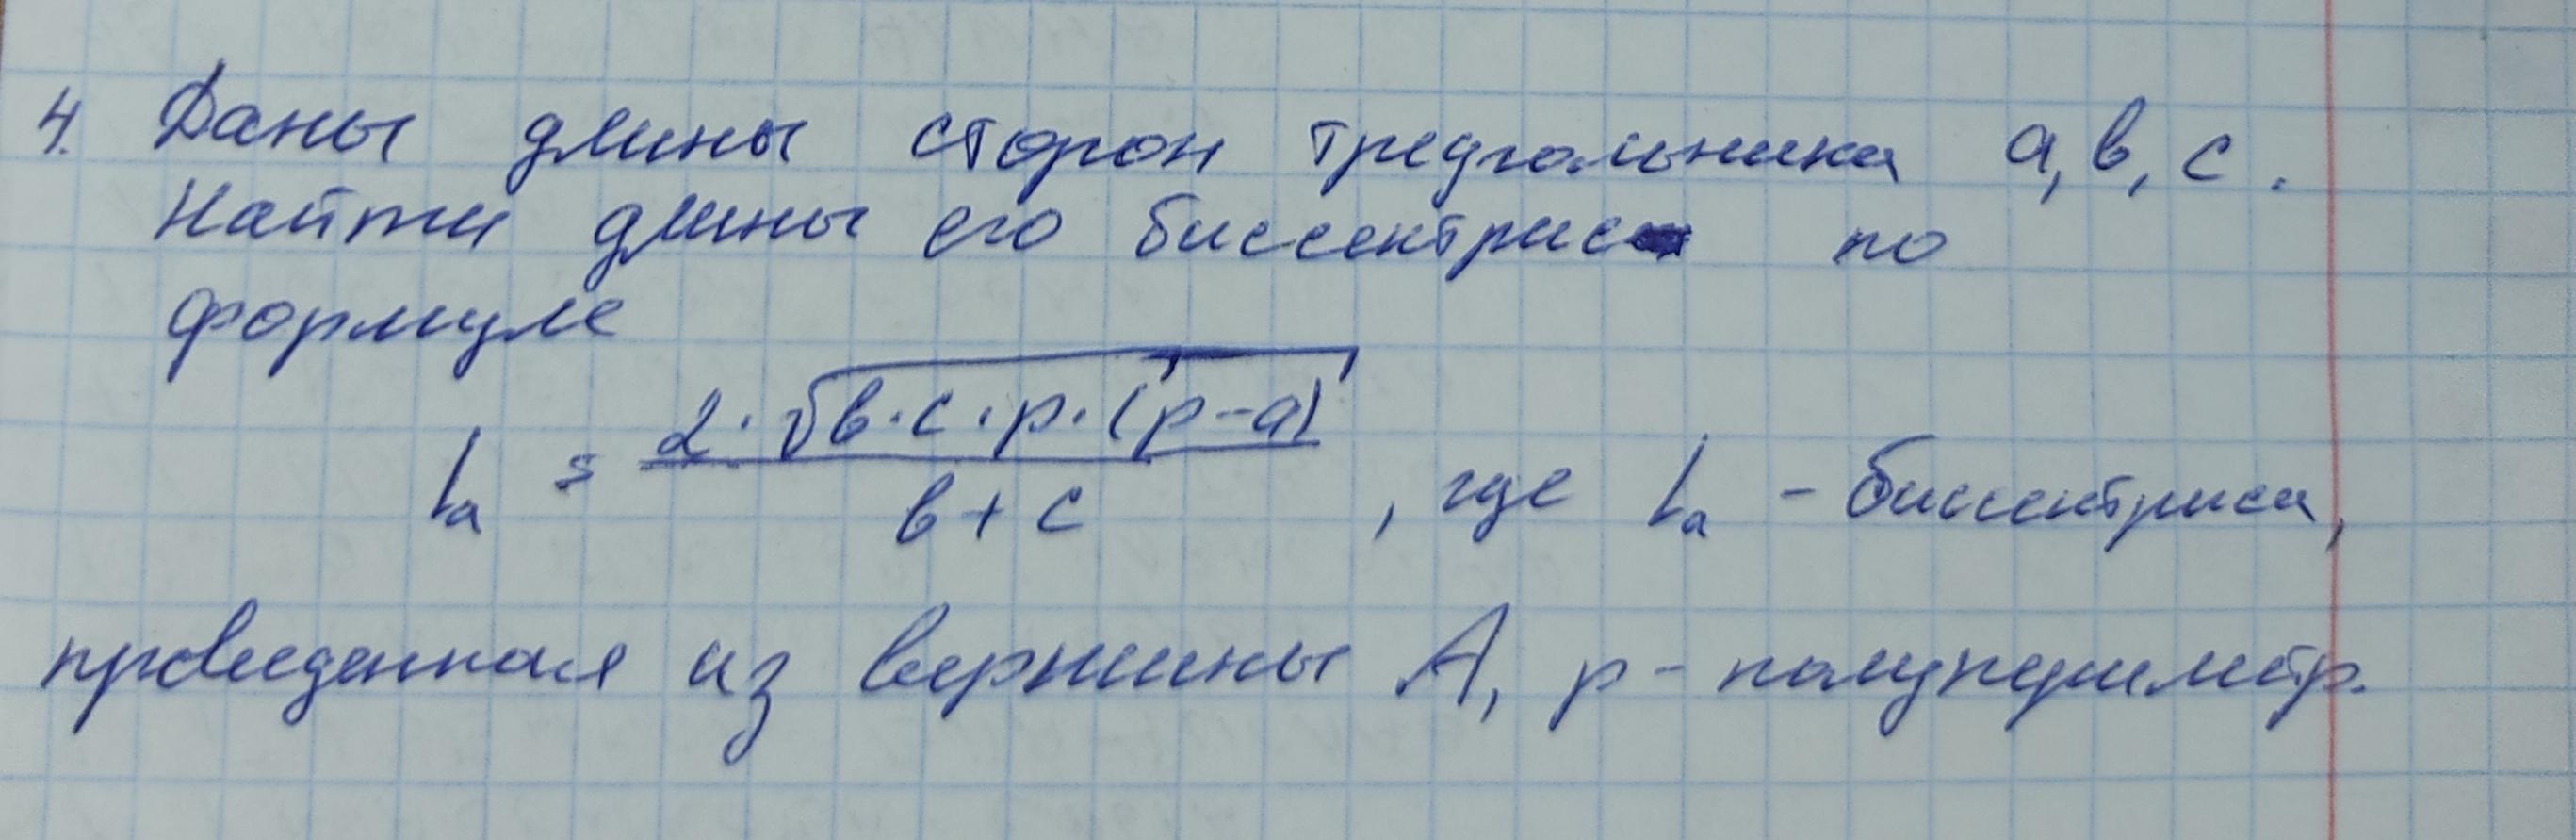 4. Даны длины сторон треугольника a, b, c.
Найти длины его биссектрис по
формуле
la = 2·√b·c·p·(p-a) / b+c, где la - биссектриса,
проведенная из вершины A, p - полупериметр.